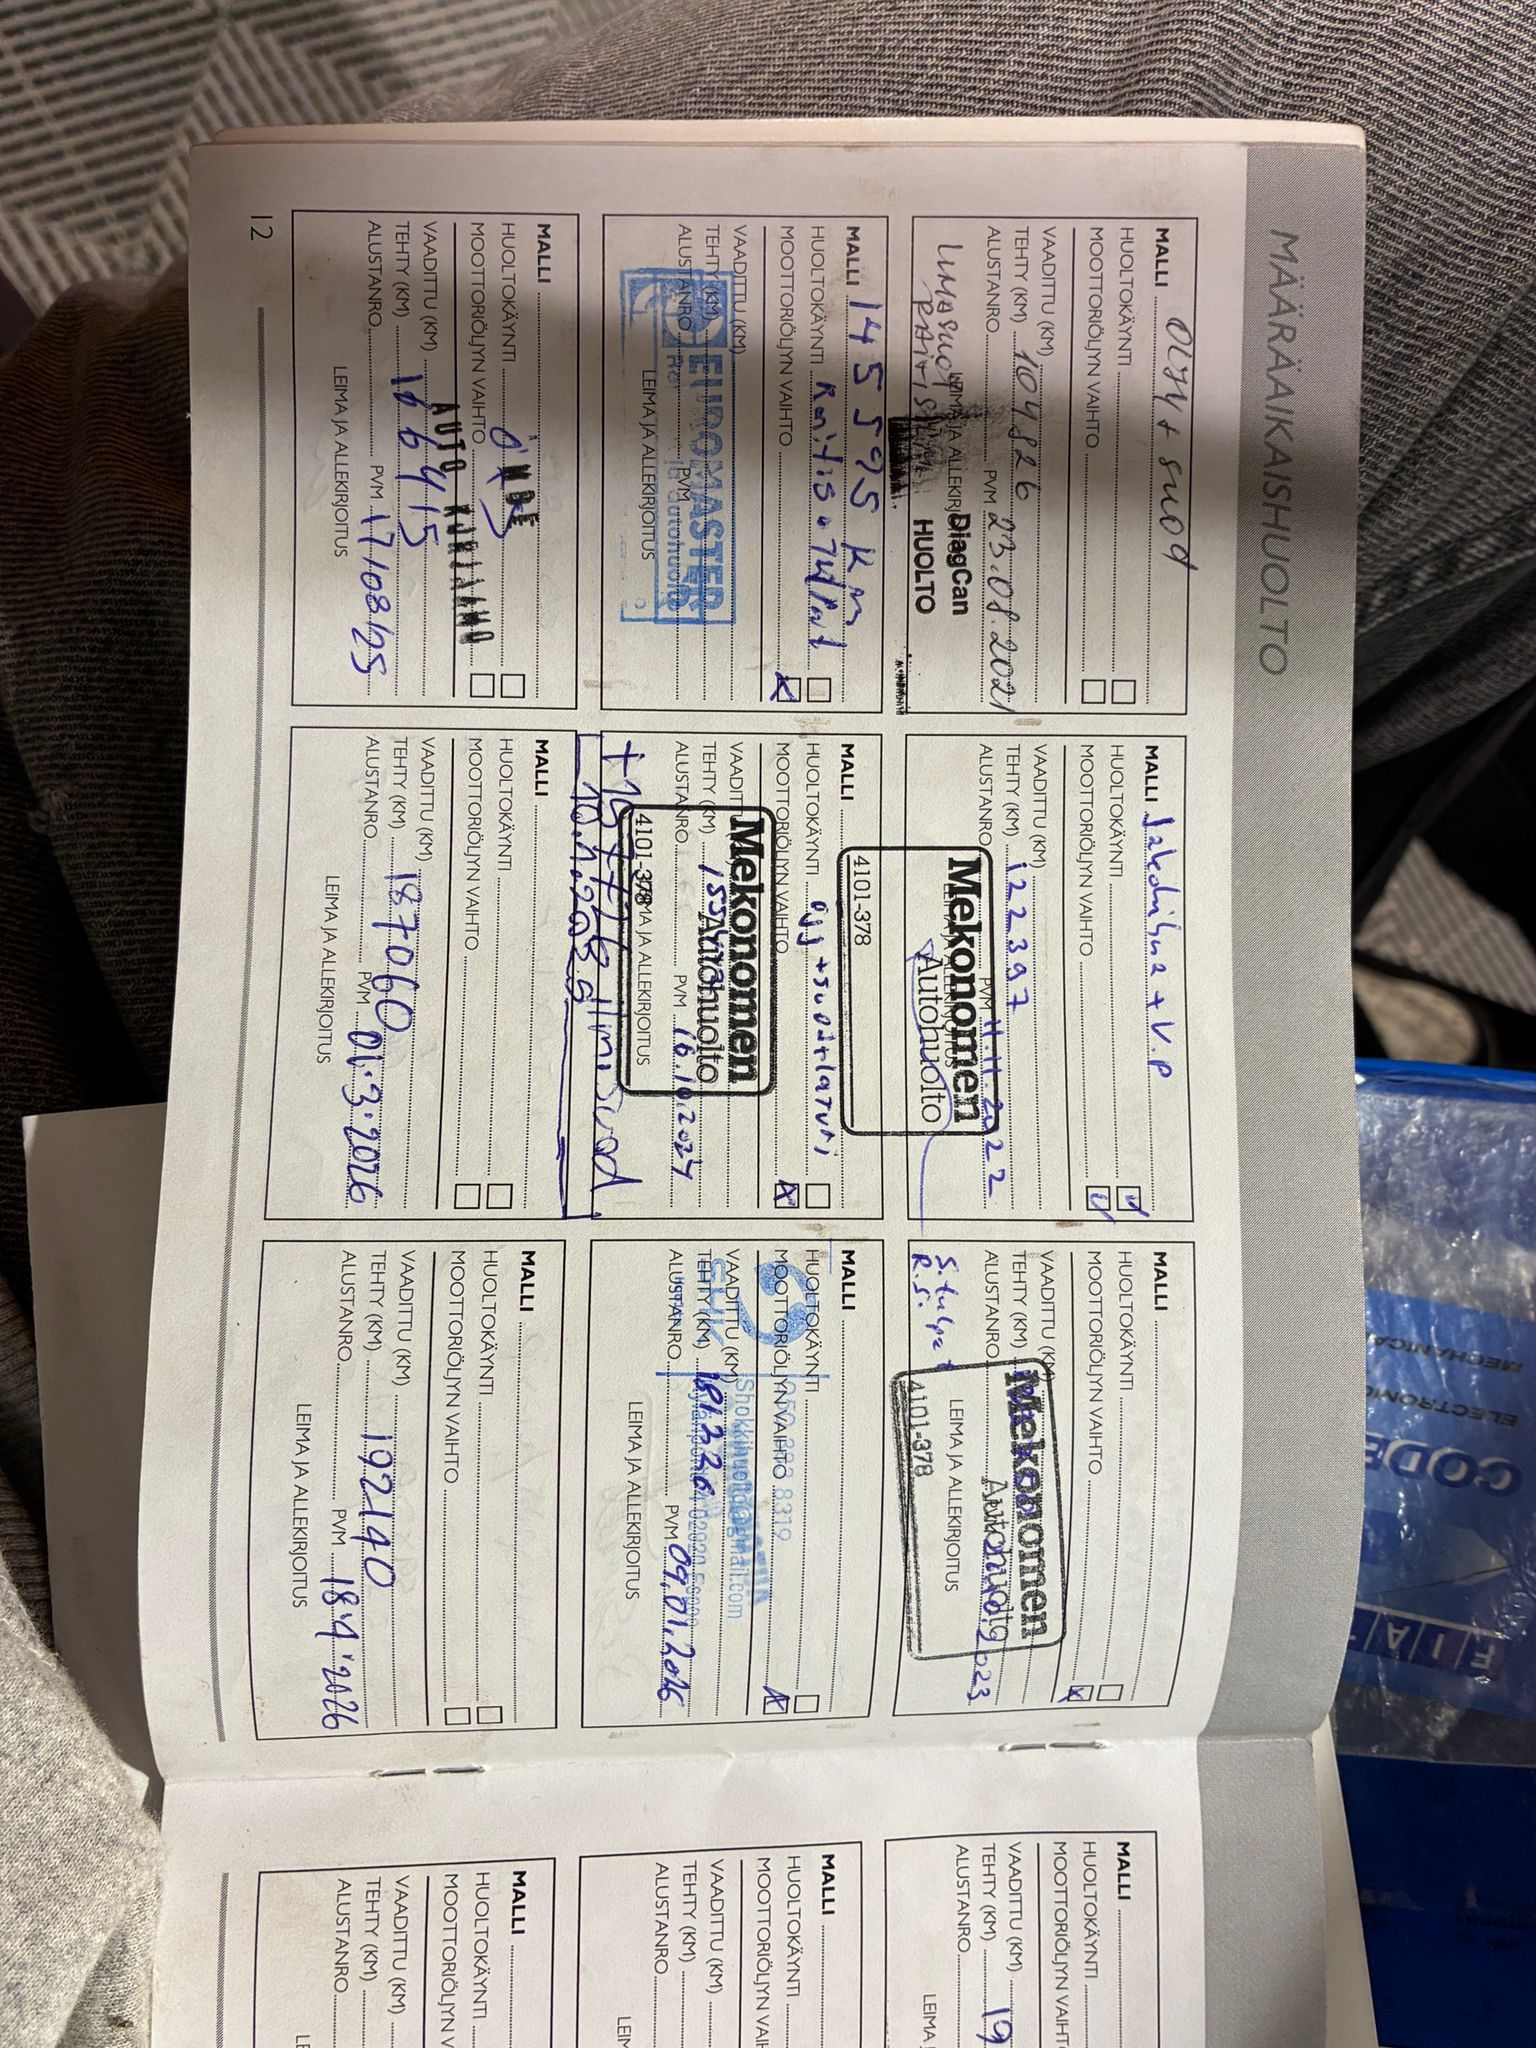 MÄÄRÄAIKAISHUOLTO
MALLI
ÖLJY + SUOD
HUOLTOKÄYNTI
MOOTTORIÖLJYN VAIHTO
VAADITTU (KM)
TEHTY (KM) 104826
ALUSTANRO PVM 23.08.2021
LEIMA JA ALLEKIRJOITUS
DiagCan
HUOLTO
MALLI Jakohihna + V.P
HUOLTOKÄYNTI
MOOTTORIÖLJYN VAIHTO
VAADITTU (KM)
TEHTY (KM) 122397
ALUSTANRO PVM 11.11.2022
LEIMA JA ALLEKIRJOITUS
Mekonomen
Autohuolto
4101-378
MALLI
HUOLTOKÄYNTI
MOOTTORIÖLJYN VAIHTO
VAADITTU (KM)
TEHTY (KM)
ALUSTANRO 2023
LEIMA JA ALLEKIRJOITUS
S.tulpat
R.S.
Mekonomen
Autohuolto
4101-378
MALLI 145595 km
HUOLTOKÄYNTI
MOOTTORIÖLJYN VAIHTO
VAADITTU (KM)
TEHTY (KM)
ALUSTANRO PVM
LEIMA JA ALLEKIRJOITUS
EUROMASTER
ja autohuolto
MALLI
HUOLTOKÄYNTI
MOOTTORIÖLJYN VAIHTO
VAADITTU (KM)
TEHTY (KM)
ALUSTANRO PVM 16.10.2024
LEIMA JA ALLEKIRJOITUS
Mekonomen
Autohuolto
4101-378
MALLI
HUOLTOKÄYNTI
MOOTTORIÖLJYN VAIHTO
VAADITTU (KM)
TEHTY (KM) 181226
ALUSTANRO PVM 09.01.2026
LEIMA JA ALLEKIRJOITUS
8319
Shokkihuolto@gmail.com
MALLI
HUOLTOKÄYNTI
MOOTTORIÖLJYN VAIHTO
VAADITTU (KM)
TEHTY (KM) 166415
ALUSTANRO PVM 17/08/25
LEIMA JA ALLEKIRJOITUS
AUTO KORJAAMO
MALLI
HUOLTOKÄYNTI
MOOTTORIÖLJYN VAIHTO
VAADITTU (KM)
TEHTY (KM) 187060
ALUSTANRO PVM 01.3.2026
LEIMA JA ALLEKIRJOITUS
MALLI
HUOLTOKÄYNTI
MOOTTORIÖLJYN VAIHTO
VAADITTU (KM)
TEHTY (KM) 192140
ALUSTANRO PVM 18.4.2026
LEIMA JA ALLEKIRJOITUS
12
MALLI
HUOLTOKÄYNTI
MOOTTORIÖLJYN VAIHT
VAADITTU (KM)
TEHTY (KM) 19
ALUSTANRO
LEIMA J
MALLI
HUOLTOKÄYNTI
MOOTTORIÖLJYN VAIH
VAADITTU (KM)
TEHTY (KM)
ALUSTANRO
LEIM
MALLI
HUOLTOKÄYNTI
MOOTTORIÖLJYN V
VAADITTU (KM)
TEHTY (KM)
ALUSTANRO
LEI
MECHANICA
ELECTRONIC
CODE
FIAT